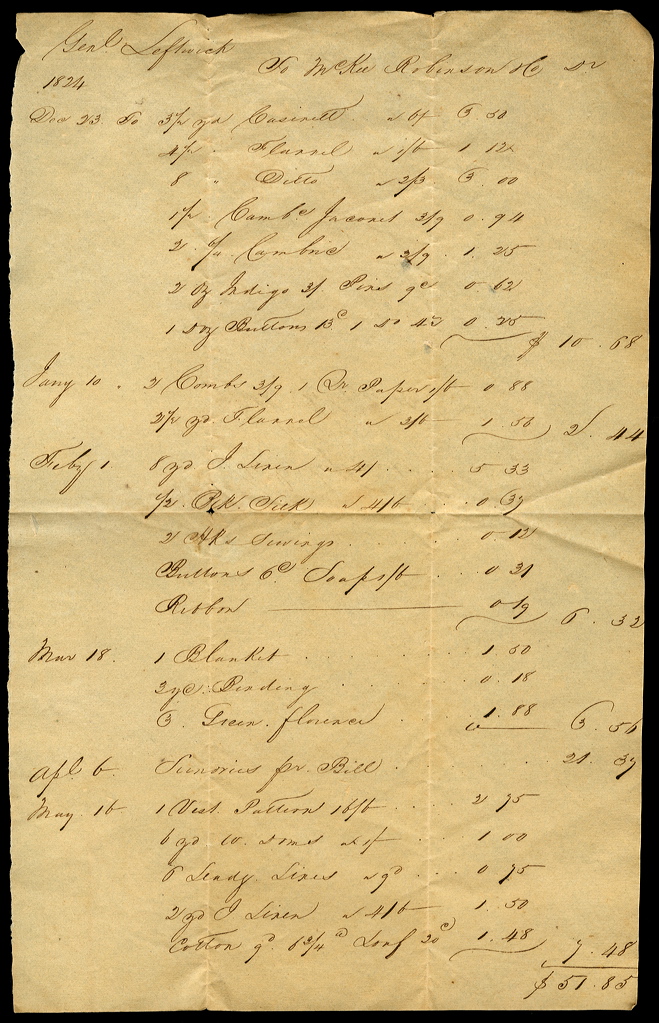 Genl. Leftwick
To McKee Robinson & Co Dr
1824
Dec 23. To 3 1/2 yd Casinett a 6/ 3.50
4 1/2 " Flannel a 1/6 1 12 1/2
8 " Ditto a 2/3 3.00
1 1/2 Cambc Jaconet 3/9 0.94
2 Cambric a 3/9 1.25
2 oz Indigo 3/ Pins 9c 0 62
1 Doz Buttons 13c 1 Do 0.25
$ 10.68
Jany 10. 2 Combs 3/9 1 Qr. Paper 1/6 0 88
2 1/2 yd Flannel a 3/6 1.56
2.44
Feby 1. 8 yd I. Linen a 4/ 5 33
1/2 Silk a 4/6 0.37
2 Hks Sewings 0 12
Buttons 6c Soap 1/6 0 31
Ribbon 0 19
6.32
Mar 18. 1 Blanket 1.50
3 yd Binding 0.18
3 Green florence 1.88
3.56
Apl. 6 Sundries pr. Bill 21.37
May. 16 1 Vest Pattern 16/6 2 75
6 yd 1 00
6 Lines a 9d 0 75
2 yd I Linen a 4/6 1.50
Cotton 6 3/4 Loaf 20c 1.48
7.48
$ 51.85